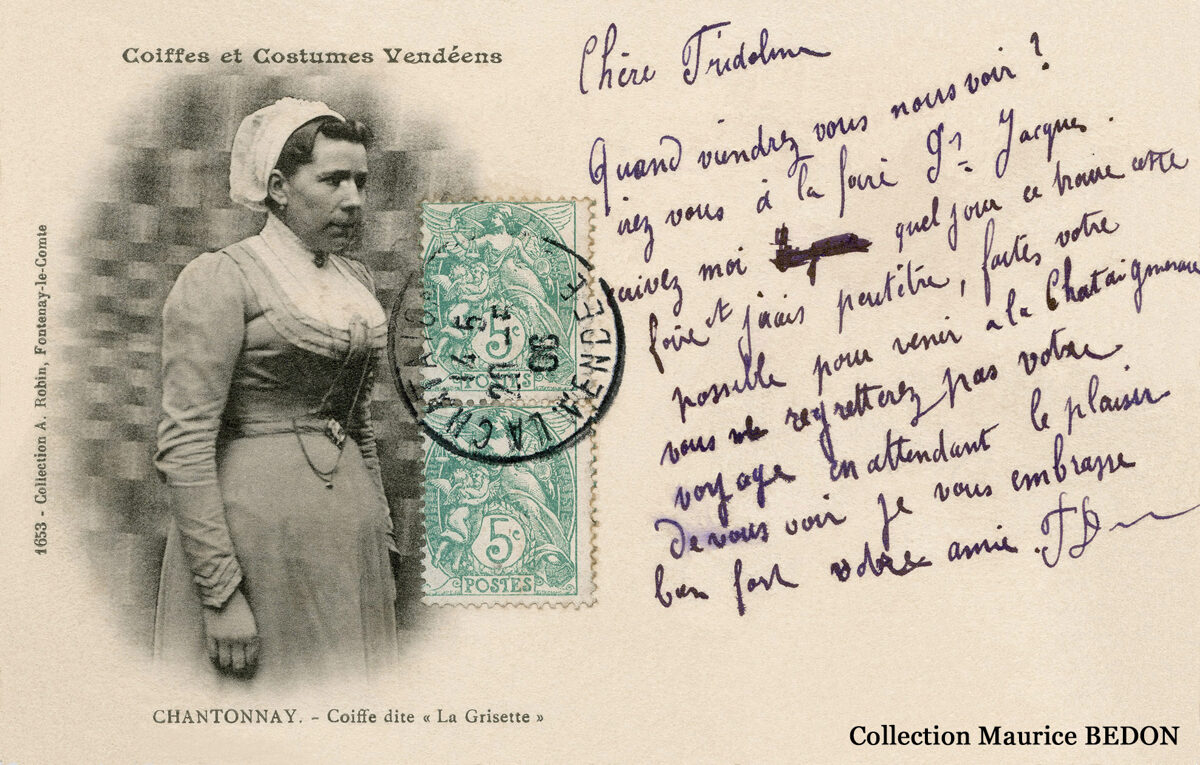 Coiffes et Costumes Vendéens
1653 - Collection A. Robin, Fontenay-le-Comte
CHANTONNAY. - Coiffe dite « La Grisette »
5c
POSTES
5c
POSTES
LA CH
VENDEE
06
Chère
Quand viendrez vous nous voir ?
irez vous à la foire St Jacques.
moi quel jour ce trouve cette
foire et jirais peutêtre, faites votre
possible pour venir a la Chataigneraie
vous ne regretterez pas votre
voyage en attendant le plaisir
de vous voir je vous embrasse
bien fort votre amie
Collection Maurice BEDON